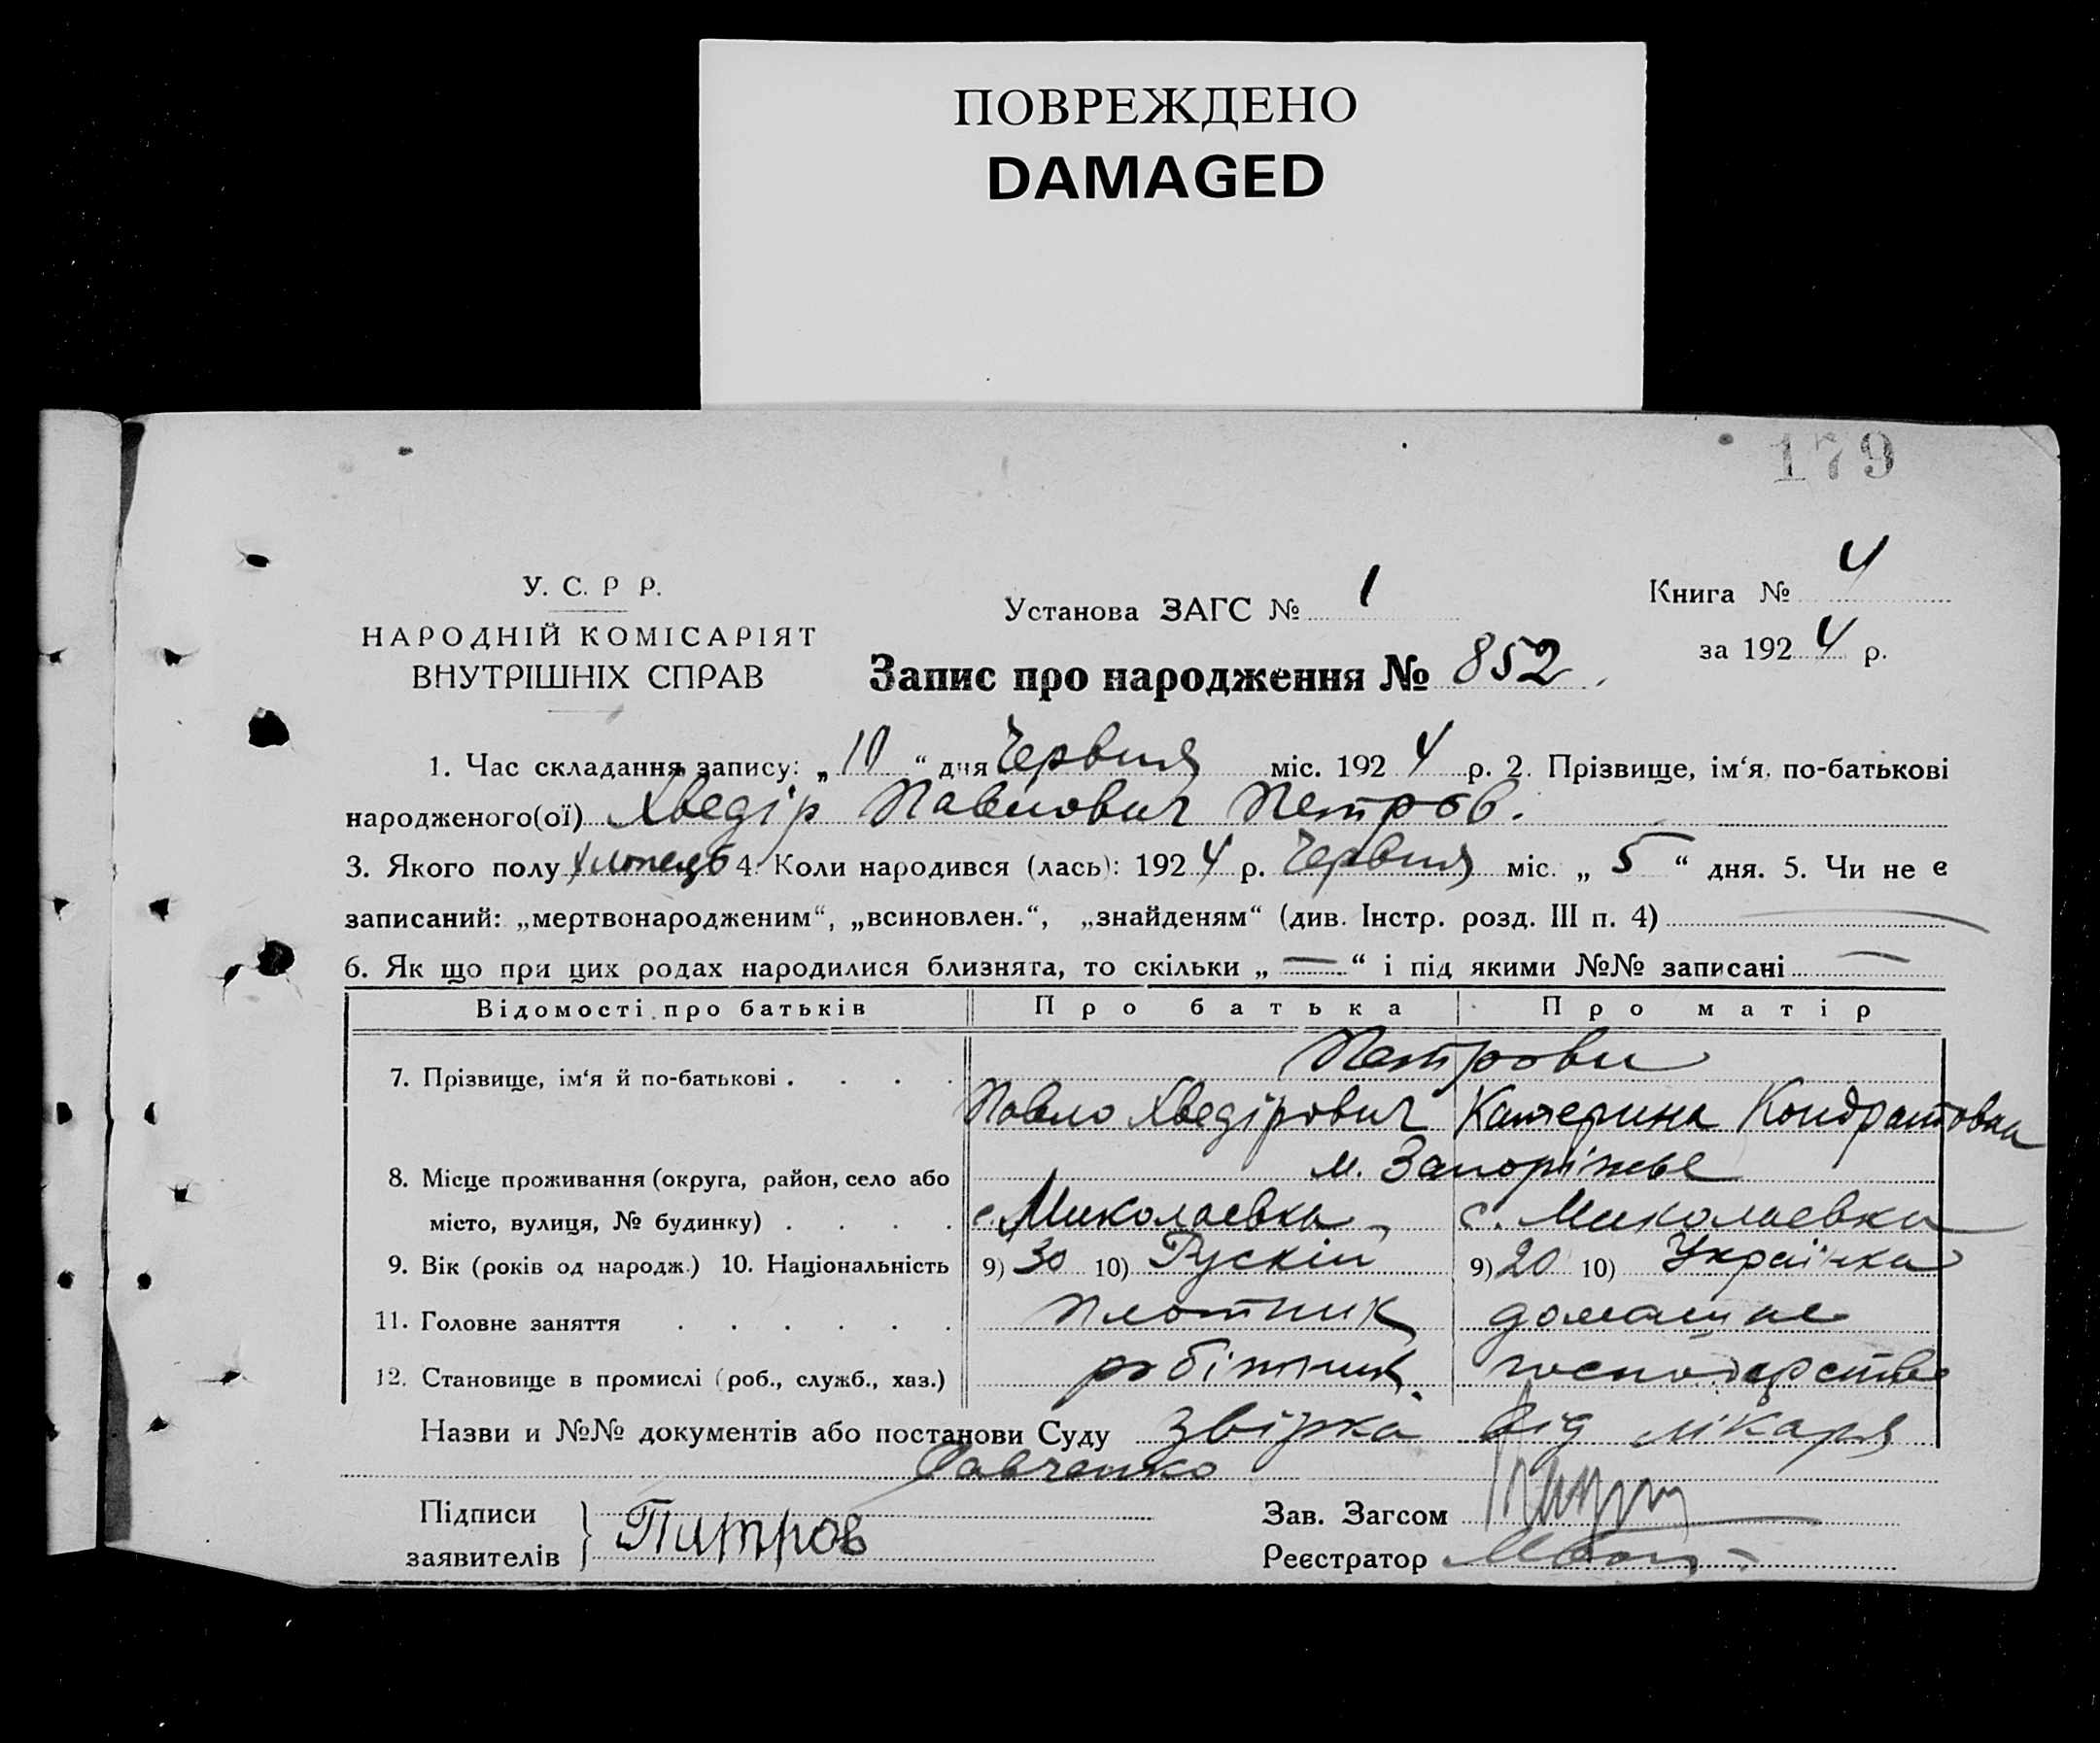 ПОВРЕЖДЕНО
DAMAGED
179
У. С. Р Р.
НАРОДНІЙ КОМІСАРІЯТ
ВНУТРІШНІХ СПРАВ
Установа ЗАГС № 1
Запис про народження № 852.
Книга № 4
за 1924 р.
1. Час складання запису: „10“ дня Червня міс. 1924 р. 2. Прізвище, ім‘я, по-батькові
народженого(ої) Хведір Павлович Петров.
3. Якого полу хлопець 4. Коли народився (лась): 1924 р. Червня міс. „5“ дня. 5. Чи не є
записаний: „мертвонародженим“, „всиновлен.“, „знайденям“ (див. Інстр. розд. III п. 4) —
6. Як що при цих родах народилися близнята, то скільки „—“ і під якими №№ записані —
Відомості про батьків Про батька Про матір
Петрови
7. Прізвище, ім‘я й по-батькові . . . .
Павло Хведірович Катерина Кондратовна
м. Запоріжье
8. Місце проживання (округа, район, село або
місто, вулиця, № будинку) . . . . с. Миколаевка с. Миколаевка
9. Вік (років од народж.) 10. Національність 9) 30 10) Рускій 9) 20 10) Українка
11. Головне заняття . . . . . . Плотник домашне
12. Становище в промислі (роб., служб., хаз.) робітник. господарство
Назви и №№ документів або постанови Суду від лікаря
Савченко
Підписи
заявителів } Питров
Зав. Загсом
Реєстратор